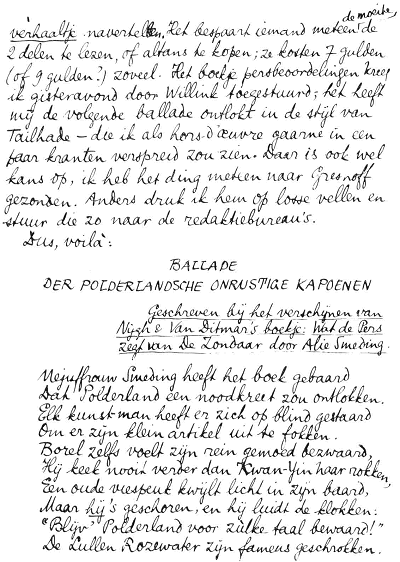 de moeite,
verhaaltje navertellen. Het bespaart iemand meteen de
2 delen te lezen, of altans te kopen; ze kosten 7 gulden
(of 9 gulden?) zoveel. Het boekje persbeoordelingen kreeg
ik gisteravond door Willink toegestuurd; het heeft
mij de volgende ballade ontlokt in de stijl van
Tailhade – die ik als hors-d'œuvre gaarne in een
paar kranten verspreid zou zien. Daar is ook wel
kans op, ik heb het ding meteen naar Gresnoff
gezonden. Anders druk ik hem op losse vellen en
stuur die zo naar de redaktiebureau's.
Dus, voilà:
BALLADE
DER POLDERLANDSCHE ONRUSTIGE KAPOENEN
Geschreven bij het verschijnen van
Nijgh & Van Ditmar's boekje: Wat de Pers
zegt van De Zondaar door Alie Smeding.
Mejuffrouw Smeding heeft het boek gebaard
Dat Polderland een noodkreet zou ontlokken.
Elk kunstman heeft er zich op blind gestaard
Om er zijn klein artikel uit te fokken.
Borel zelfs voelt zijn rein gemoed bezwaard,
Hij keek nooit verder dan Kwan-Yin haar rokken,
Een oude viespeuk kwijlt licht in zijn baard,
Maar hij's geschoren, en hij luidt de klokken:
"Blijv' Polderland voor zulke taal bewaard!"
De Lullen Rozewater zijn fameus geschrokken.